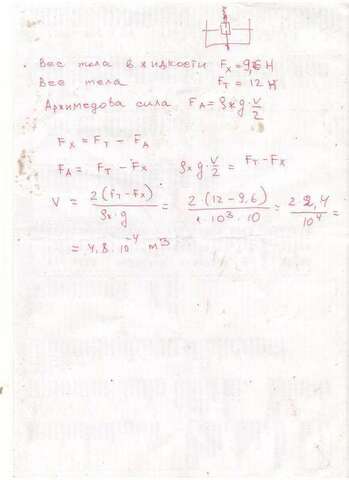 Вес тела в жидкости Fж = 9,6 Н
Вес тела Fт = 12 Н
Архимедова сила FА = ρж g · V/2
Fж = Fт − FА
FА = Fт − Fж ρж g · V/2 = Fт − Fж
V = 2(Fт − Fж)/ρж · g = 2 · (12 − 9,6)/1 · 10³ · 10 = 2 2,4/10⁴ =
= 4,8 · 10⁻⁴ м³